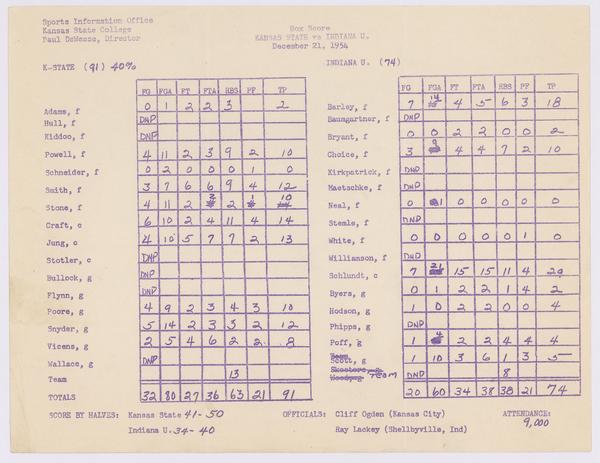 Sports Information Office
Kansas State College
Paul DeWeese, Director
Box Score
KANSAS STATE vs INDIANA U.
December 21, 1954
K-STATE (91) 40%
INDIANA U. (74)
FG FGA FT FTA RBS PF TP
Adams, f 0 1 2 2 3 2
Hull, f DNP
Kiddoo, f DNP
Powell, f 4 11 2 3 9 2 10
Schneider, f 0 2 0 0 0 1 0
Smith, f 3 7 6 6 9 4 12
Stone, f 4 11 2 3 2 1 10
Craft, c 6 10 2 4 11 4 14
Jung, c 4 10 5 7 7 2 13
Stotler, c DNP
Bullock, g DNP
Flynn, g DNP
Poore, g 4 9 2 3 4 3 10
Snyder, g 5 14 2 3 3 2 12
Vicens, g 2 5 4 6 2 2 8
Wallace, g DNP
Team 13
TOTALS 32 80 27 36 63 21 91
FG FGA FT FTA RBS PF TP
Barley, f 7 14 4 5 6 3 18
Baumgartner, f DNP
Bryant, f 0 0 2 2 0 0 2
Choice, f 3 9 4 4 7 2 10
Kirkpatrick, f DNP
Maetschke, f DNP
Neal, f 0 1 0 0 0 0 0
Steale, f DNP
White, f 0 0 0 0 0 1 0
Williamson, f DNP
Schlundt, c 7 21 15 15 11 4 29
Byers, g 0 1 2 2 1 4 2
Hodson, g 1 0 2 2 0 0 4
Phipps, g DNP
Poff, g 1 4 2 2 4 4 4
Scott, g 1 10 3 6 1 3 5
TEAM DNP 8
20 60 34 38 38 21 74
SCORE BY HALVES: Kansas State 41-50
Indiana U. 34-40
OFFICIALS: Cliff Ogden (Kansas City)
Ray Lackey (Shellbyville, Ind)
ATTENDANCE:
9,000